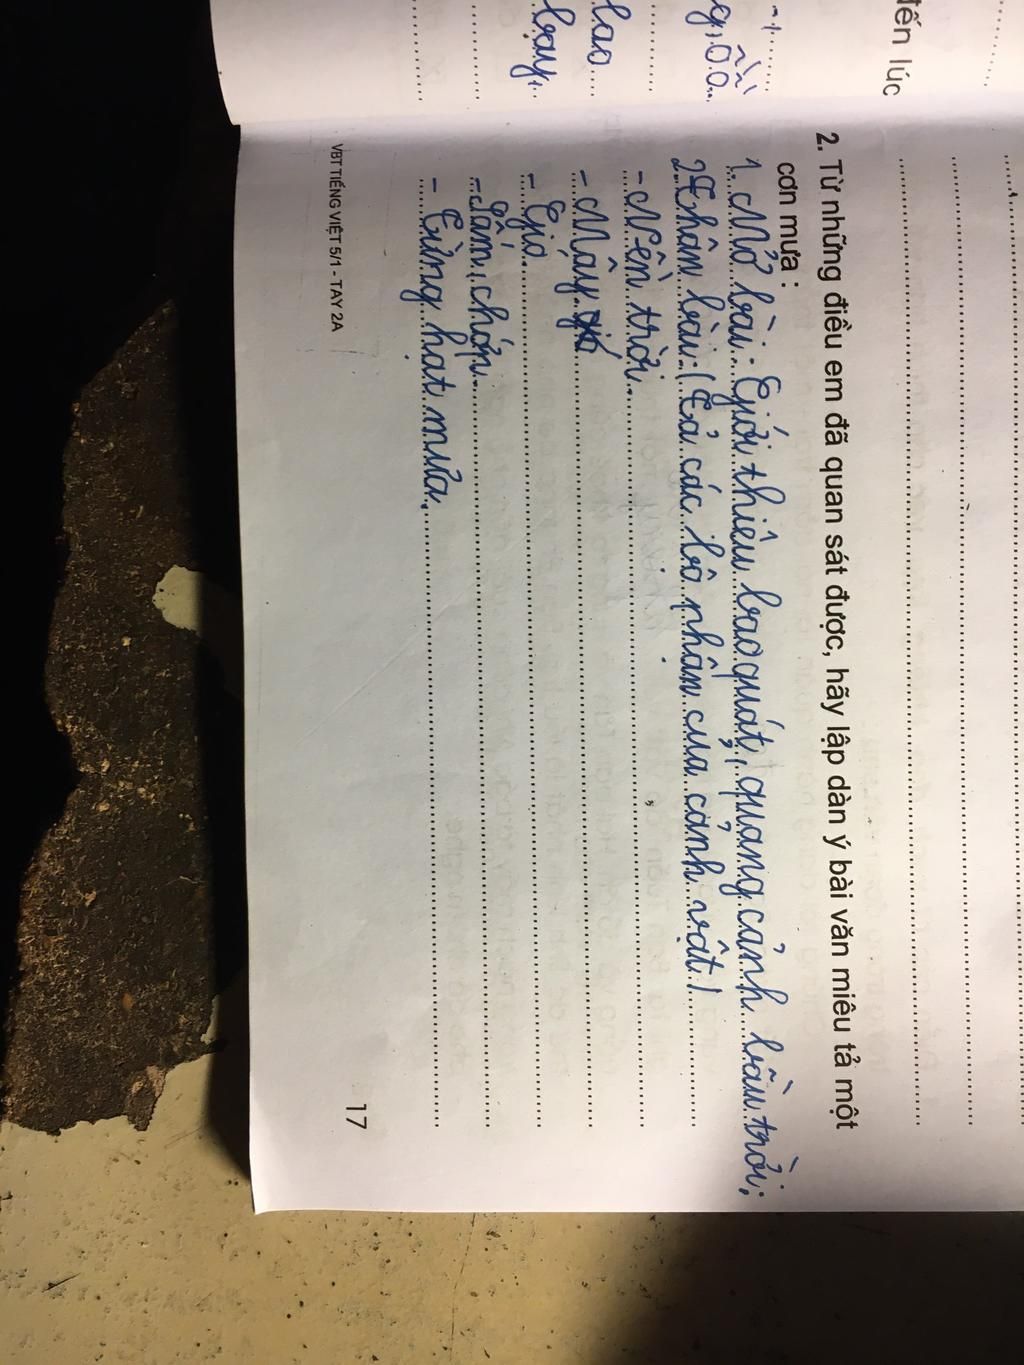 đến lúc
lao
bay,
2. Từ những điều em đã quan sát được, hãy lập dàn ý bài văn miêu tả một
cơn mưa :
1. Mở bài: Giới thiệu bao quát, quang cảnh bầu trời;
2. Thân bài: (Tả các bộ phận của cảnh vật)
- Nền trời.
- Mây
- Gió.
- Sấm, chớp.
- Từng hạt mưa.
VBT TIẾNG VIỆT 5/1 - TAY 2A
17